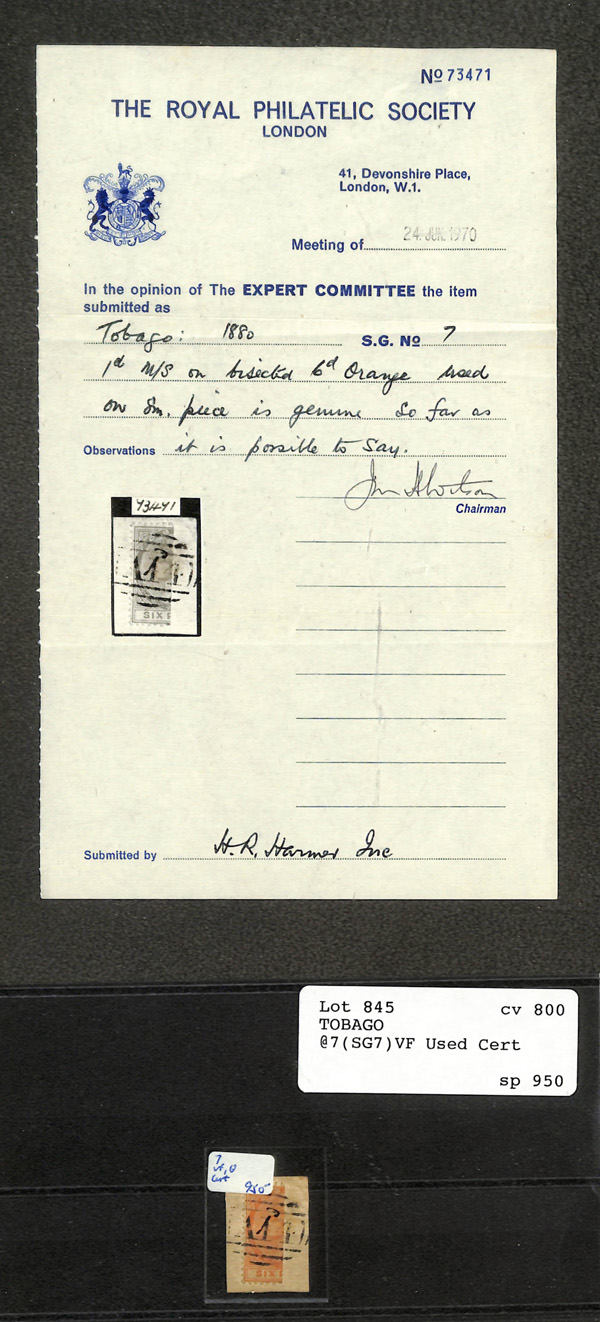 No 73471
THE ROYAL PHILATELIC SOCIETY
LONDON
41, Devonshire Place,
London, W.1.
Meeting of 24 JUN. 1970
In the opinion of The EXPERT COMMITTEE the item
submitted as
Tobago: 1880 S.G. No 7
1d M/S on bisected 6d Orange used
on sm. piece is genuine so far as
Observations it is possible to say.
Chairman
73471
SIX
Submitted by H.R. Harmer Inc
Lot 845 cv 800
TOBAGO
@7(SG7)VF Used Cert
sp 950
7
vf,
Cert 950
SIX